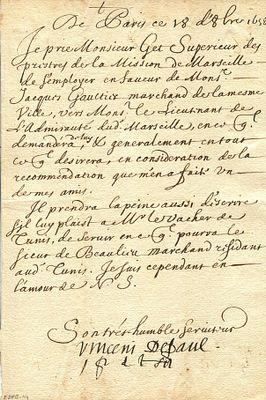 De Paris ce 18 d'8bre 1658
Je prie Monsieur Get Superieur des
prestres de la Mission de Marseille
de s'employer en faveur de Monsr
Jacques Gaultier marchand de la mesme
Ville, vers Monsr le Lieutenant de
l'Admirauté dud. Marseille, en ce q̃
demandera, & generalement en tout
ce q̃ desirera, en consideration de la
recommendation que m'en a faite un
de mes amis.
Il prendra la peine aussi d'escrire
s'il luy plaist a Mr le Vacher de
Tunis, de servir en ce q̃ pourra le
sieur de Beaulieu marchand residant
aud. Tunis. Je suis cependant en
l'amour de N. S.
Son tres-humble serviteur
Vincent Depaul